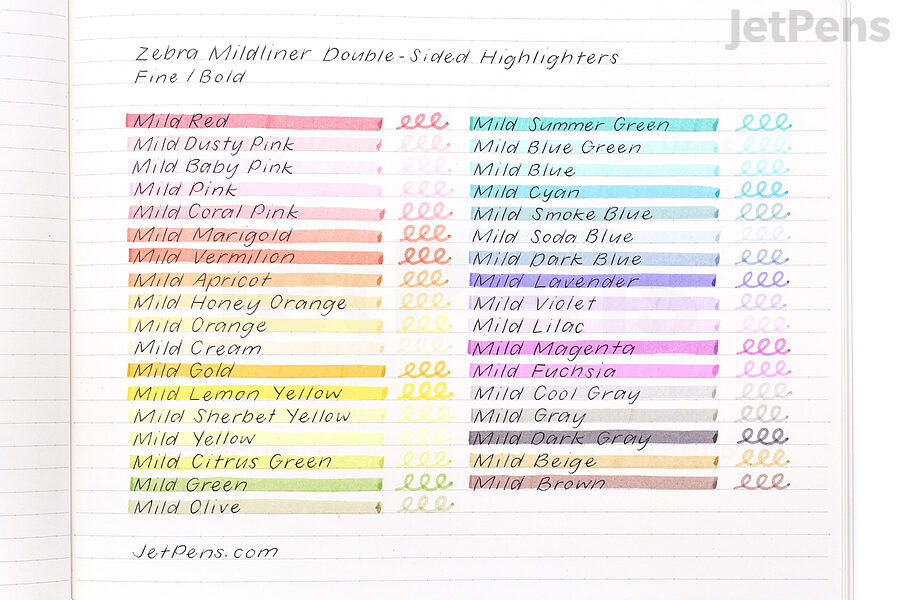 JetPens
Zebra Mildliner Double-Sided Highlighters
Fine / Bold
Mild Red
Mild Dusty Pink
Mild Baby Pink
Mild Pink
Mild Coral Pink
Mild Marigold
Mild Vermilion
Mild Apricot
Mild Honey Orange
Mild Orange
Mild Cream
Mild Gold
Mild Lemon Yellow
Mild Sherbet Yellow
Mild Yellow
Mild Citrus Green
Mild Green
Mild Olive
Mild Summer Green
Mild Blue Green
Mild Blue
Mild Cyan
Mild Smoke Blue
Mild Soda Blue
Mild Dark Blue
Mild Lavender
Mild Violet
Mild Lilac
Mild Magenta
Mild Fuchsia
Mild Cool Gray
Mild Gray
Mild Dark Gray
Mild Beige
Mild Brown
JetPens.com